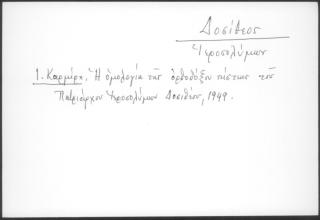 Δοσίθεος
Ἱεροσολύμων
1. Καρμίρη, Ἡ ὁμολογία τῆς ὀρθοδόξου πίστεως τοῦ
Πατριάρχου Ἱεροσολύμων Δοσιθέου, 1949.